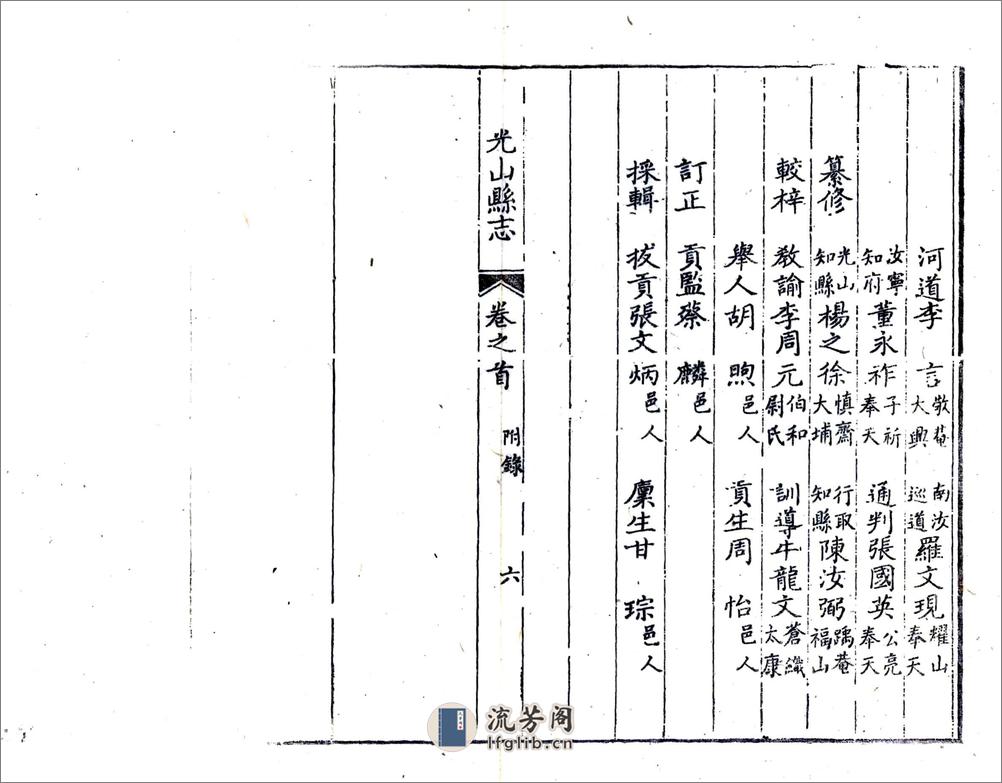 河道李 言敬菴大興 南汝巡道羅文現耀山奉天
汝寧知府董永祚子祈奉天 通判張國英公亮奉天
纂修 光山知縣楊之徐慎齋大埔 行取知縣陳汝弼踽菴福山
較梓 教諭李周元伯和尉氏 訓導牛龍文蒼纖太康
舉人胡 煦邑人 貢生周 怡邑人
訂正 貢監蔡 麟邑人
採輯 拔貢張文炳邑人 廩生甘 琮邑人
光山縣志 卷之首 附錄 六
流芳阁
lfglib.cn